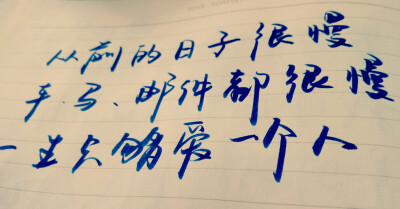 从前的日子很慢
车、马、邮件都很慢
一生只够爱一个人